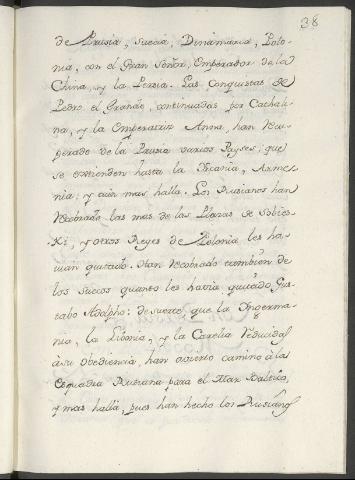 38
de Prusia, Suecia, Dinamarca, Polo-
nia, con el Gran Señor, Emperador de la
China, y la Persia. Las Conquistas de
Pedro el Grande, continuadas por Cathali-
na, y la Emperatriz Anna, han recu-
perado de la Persia varios Payses; que
se extienden hasta la Ircania, Arme-
nia; y aun mas halla. Los Rusianos han
recobrado las mas de las Plazas de Sobies-
Ki, y otros Reyes de Polonia les ha-
vian quitado. Han recobrado tambien de
los Suecos quanto les havia quitado Gus-
tabo Adolpho: de suerte, que la Ingerma-
nia, la Libonia, y la Carelia reducidas
à su obediencia, han avierto camino à la
Esquadra Rusiana para el Mar Baltico,
y mas hallà, pues han hecho los Rusianos